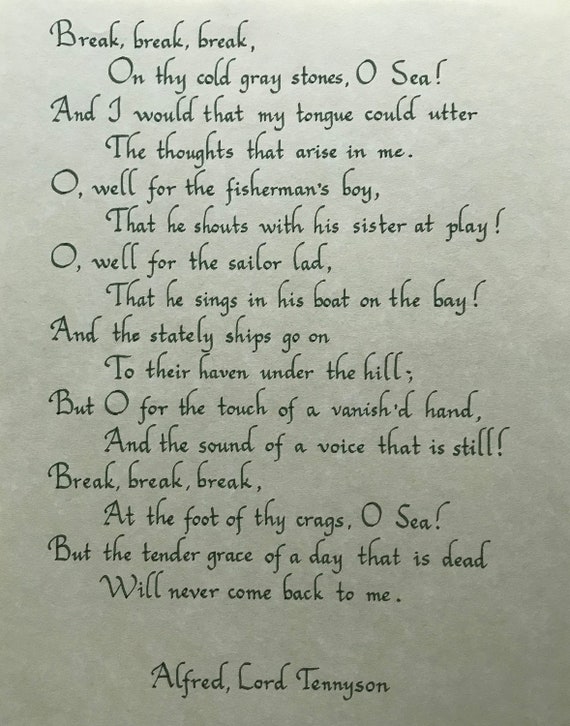 Break, break, break,
On thy cold gray stones, O Sea!
And I would that my tongue could utter
The thoughts that arise in me.
O, well for the fisherman's boy,
That he shouts with his sister at play!
O, well for the sailor lad,
That he sings in his boat on the bay!
And the stately ships go on
To their haven under the hill;
But O for the touch of a vanish'd hand,
And the sound of a voice that is still!
Break, break, break,
At the foot of thy crags, O Sea!
But the tender grace of a day that is dead
Will never come back to me.
Alfred, Lord Tennyson